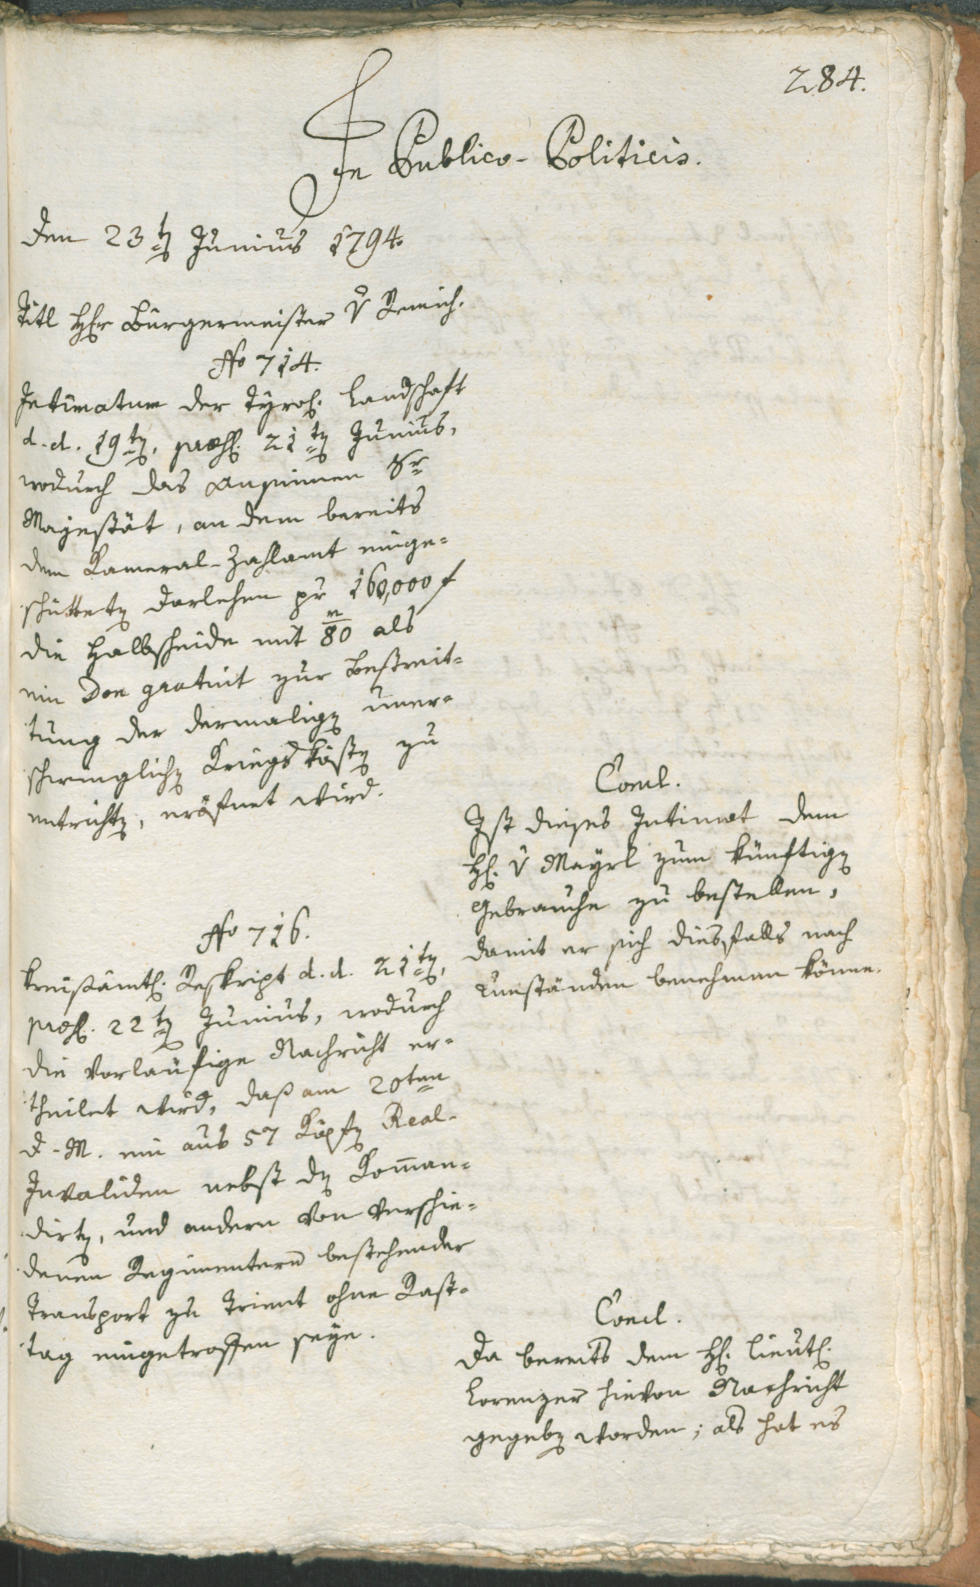 284.
In Publico-Politicis.
Den 23tn Junius 1794.
Titl Hhr Bürgermeister v Remich.
No 714.
Intimatum der Tyrol. Landschaft
d.d. 19tn, præs. 21tn Junius,
wodurch das Ansinnen Sr
Majestät, an dem bereits
dem Kameral-Zahlamt einge=
schütteten Darlehen pr 160,000 f
die Halbscheide mit 80 m als
ein Don gratuit zur Bestreit=
tung der dermaligen uner=
schwinglichen Kriegskösten zu
entrichten, eröfnet wird.
Concl.
Ist dieses Intimat dem
H. v Mayrl zum künftigen
Gebrauche zu bestellen,
damit er sich diesfalls nach
Umständen benehmen könne.
No 716.
Kreisämtl. Reskript d.d. 21tn,
præs. 22tn Junius, wodurch
die vorläufige Nachricht er=
theilet wird, daß am 20ten
d. M. ein aus 57 Köpfen Real-
Invaliden nebst den Komman=
dirten, und andern von verschie=
denen Regimentern bestehender
Transport zu Trient ohne Rast=
tag eingetroffen seye.
Concl.
Da bereits dem H. Lieut.
Lorenzer hievon Nachricht
gegeben worden; als hat es